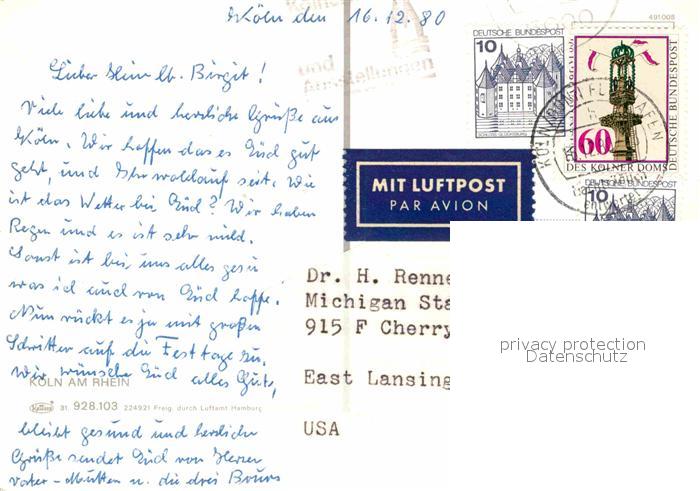 Köln den 16.12.80
Lieber Heim u. Birgit!
Viele liebe und herzliche Grüße aus
Köln. Wir hoffen das es Euch gut
geht, und Ihr wohlauf seit. Wie
ist das Wetter bei Euch? Wir haben
Regen und es ist sehr mild.
Sonst ist bei uns alles
was ich auch von Euch hoffe.
Nun rückt es ja mit großen
Schritten auf die Festtage zu.
Wir wünschen Euch alles Gute,
KÖLN AM RHEIN
31. 928.103 224921 Freig. durch Luftamt Hamburg
bleibt gesund und herzliche
Grüße sendet Euch von Herzen
Vater - Mutter u. die drei
und
Ausstellungen
491008
DEUTSCHE BUNDESPOST
10
SCHLOSS GLÜCKSBURG
60
DES KÖLNER DOMS
DEUTSCHE BUNDESPOST
DEUTSCHE BUNDESPOST
10
MIT LUFTPOST
PAR AVION
Dr. H. Renne
Michigan Sta
915 F Cherry
East Lansing
USA
privacy protection
Datenschutz